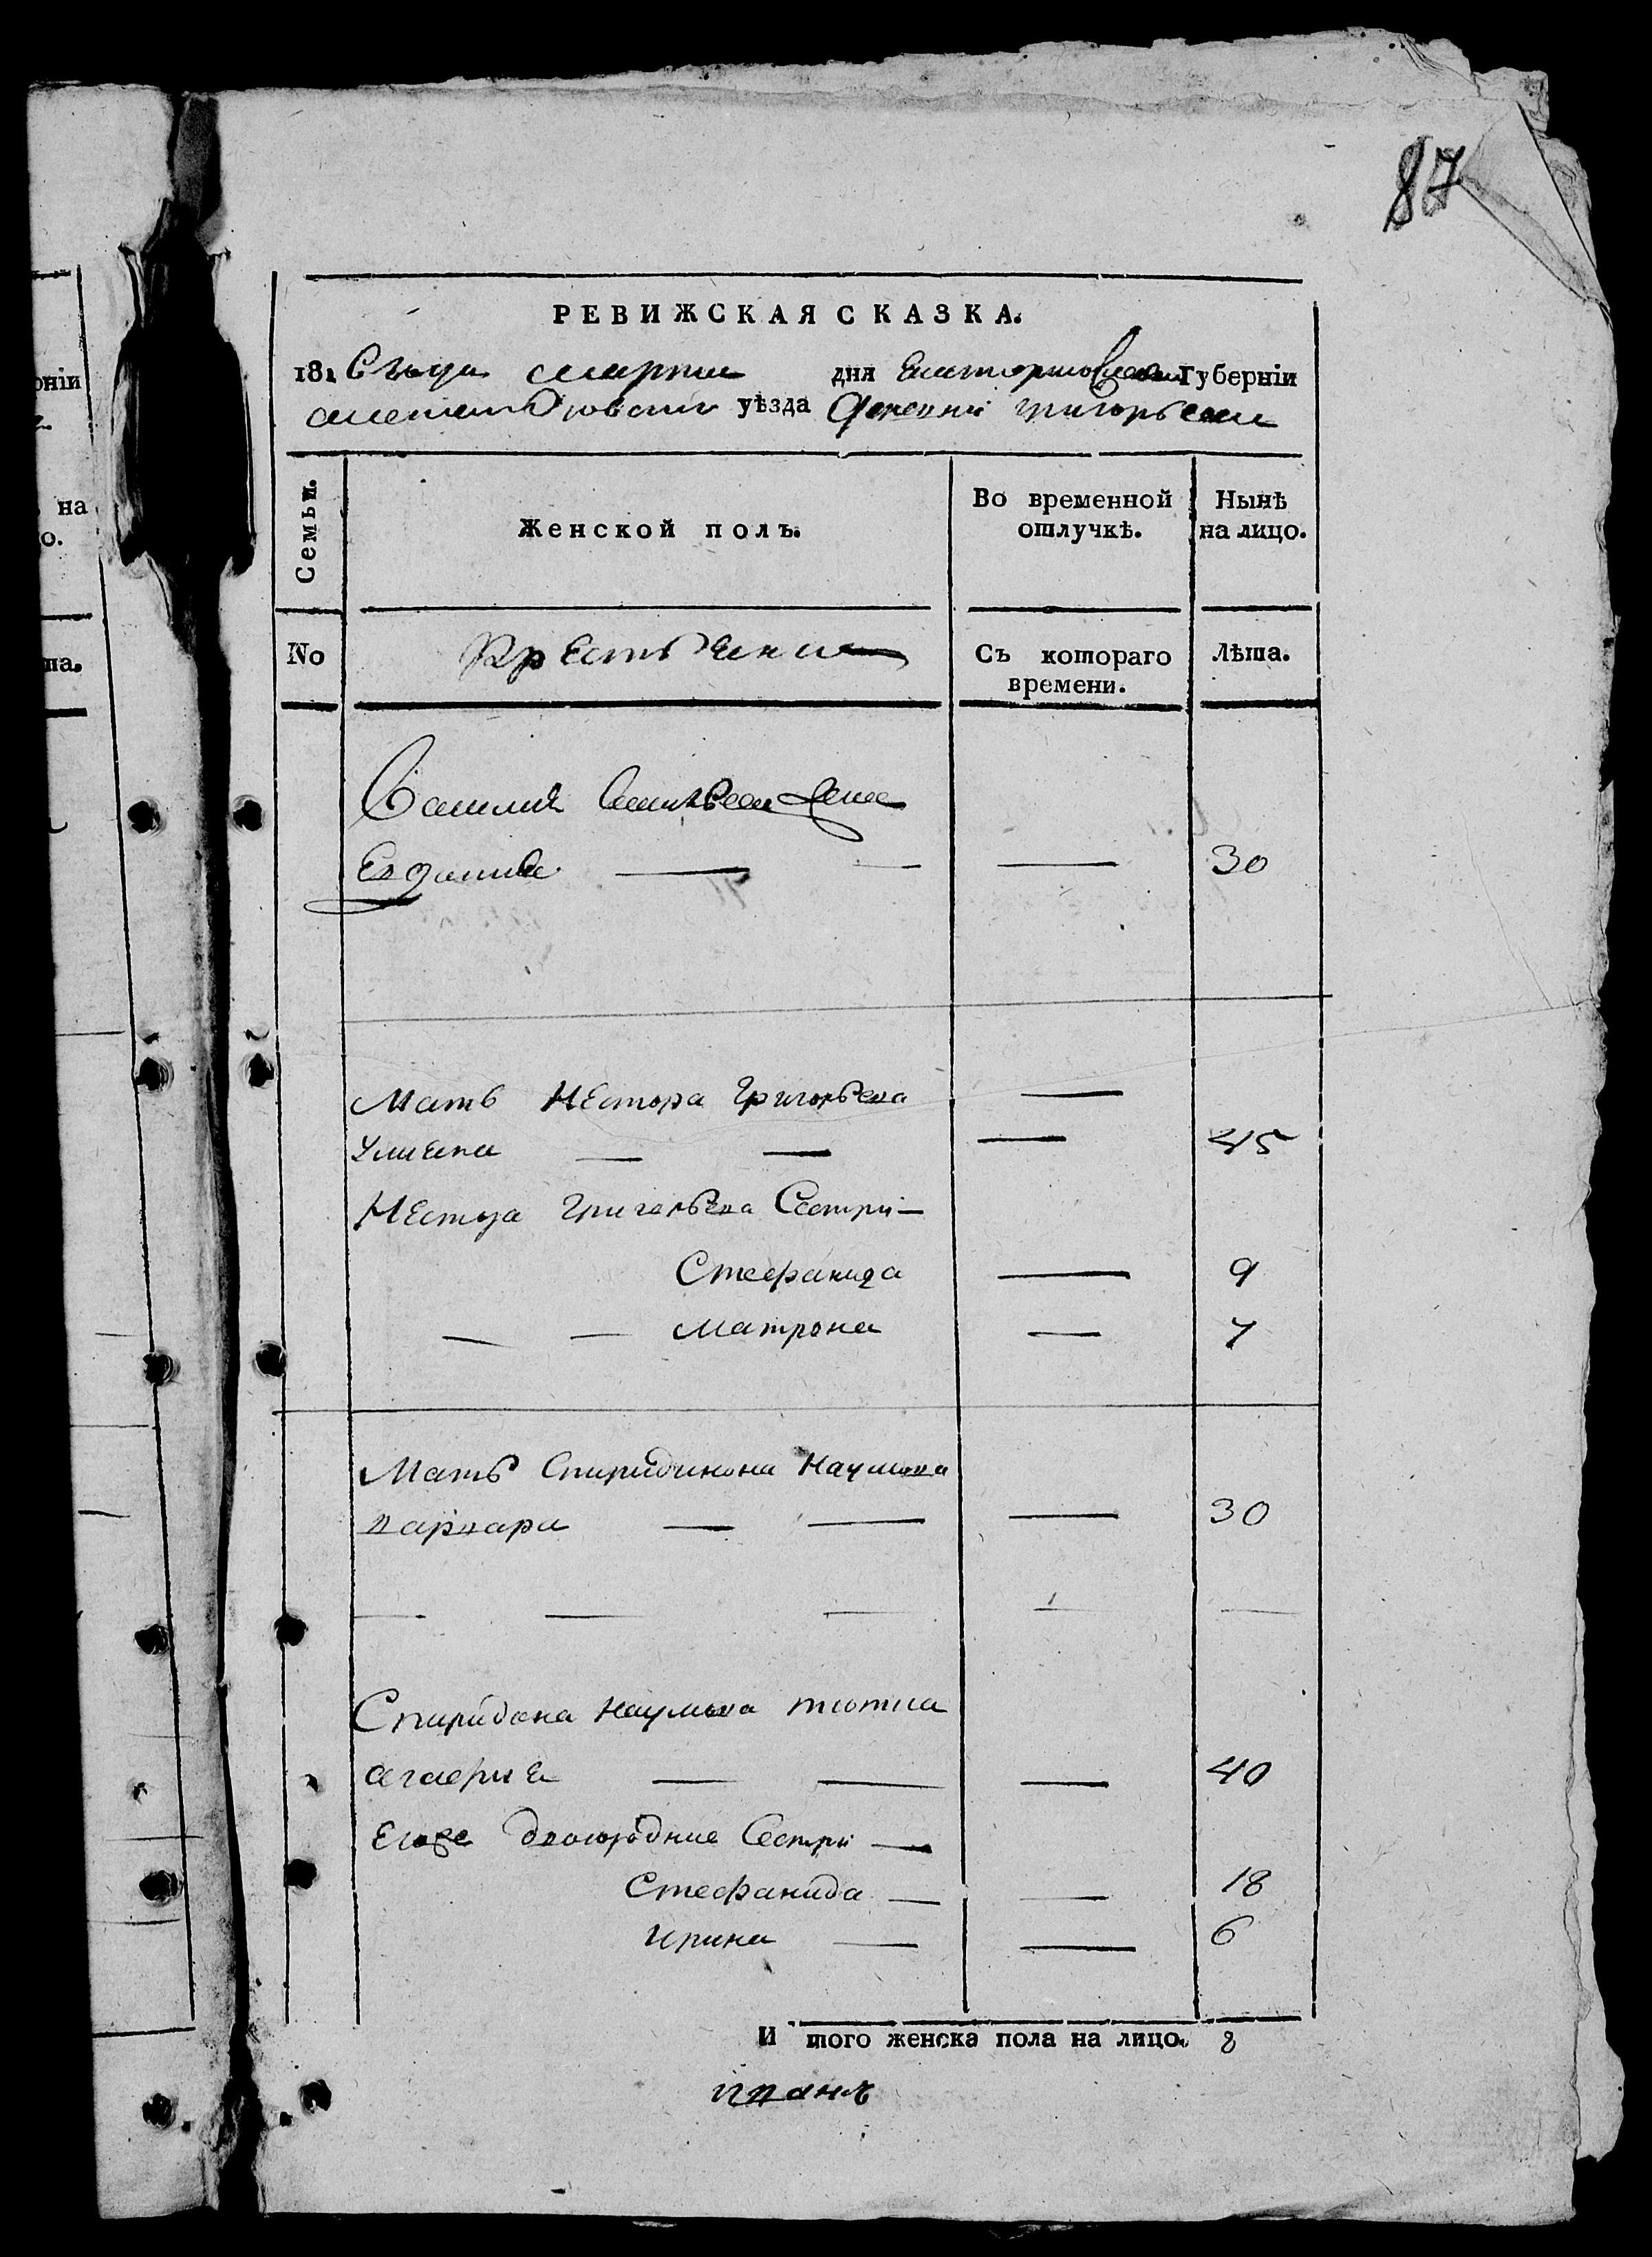 87
РЕВИЖСКАЯ СКАЗКА.
181 года марта дня Екатеринославской Губерніи
уѣзда Деревни Григорьевки
Семьи. Женской полъ. Во временной отлучкѣ. Нынѣ на лицо.
No Крестьяни Съ котораго времени. Лѣта.
Василия жена
— — — 30
Мать Нестора Григорьева —
Улиана — — — 45
Нестора Григорьева Сестри —
Стефанида — 9
— — Матрона — 7
Мать Спиридинона Наумова
Варвара — — — 30
— — — — —
Спиридона Наумова тютка
— — — 40
Егоже двоюродние Сестри —
Стефанида — — 18
Ирина — — 6
И того женска пола на лицо. 8
иванъ
ніи
на
о.
та.